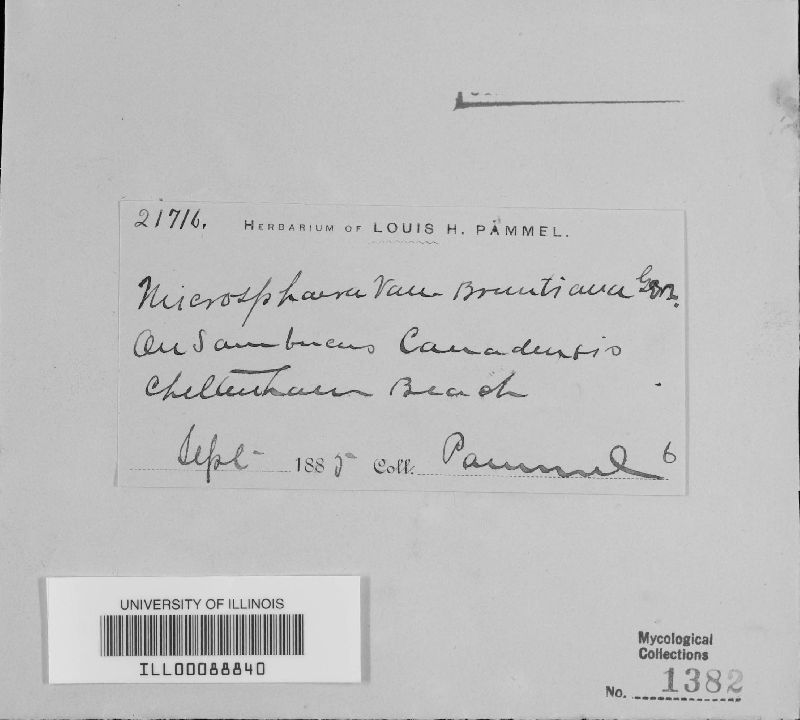 21716. HERBARIUM OF LOUIS H. PAMMEL.
Microsphaera Van Bruntiana Ger.
On Sambucus Canadensis
Cheltenham Beach
Sept 1885 Coll. Pammel 6
UNIVERSITY OF ILLINOIS
ILL00088840
Mycological
Collections
No. 1382